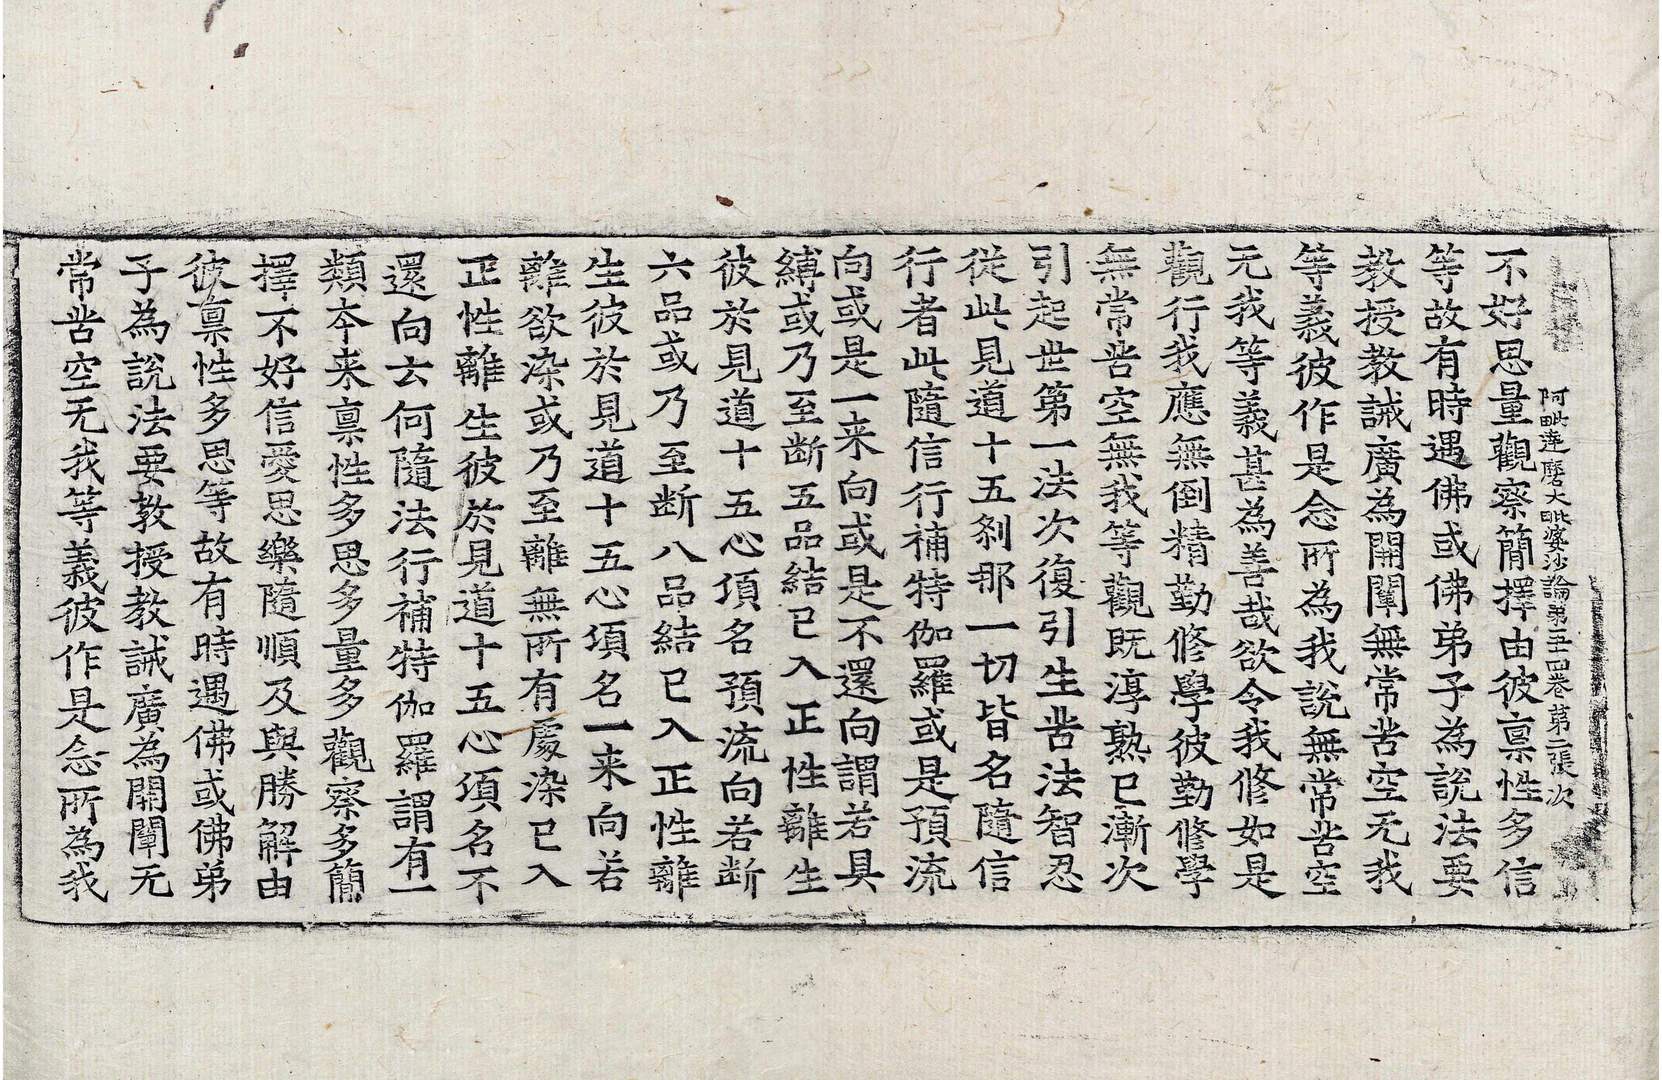 阿毗達磨大毗婆沙論第五十四卷 第二張 次
不好思量觀察簡擇由彼禀性多信
等故有時遇佛或佛弟子為說法要
教授教誡廣為開闡無常苦空无我
等義彼作是念所為我說無常苦空
无我等義甚為善哉欲令我修如是
觀行我應無倒精勤修學彼勤修學
無常苦空無我等觀既淳熟已漸次
引起世第一法次復引生苦法智忍
從此見道十五刹那一切皆名隨信
行者此隨信行補特伽羅或是預流
向或是一来向或是不還向謂若具
縛或乃至断五品結已入正性離生
彼於見道十五心頃名預流向若断
六品或乃至断八品結已入正性離
生彼於見道十五心頃名一来向若
離欲染或乃至離無所有處染已入
正性離生彼於見道十五心頃名不
還向云何隨法行補特伽羅謂有一
類夲来禀性多思多量多觀察多簡
擇不好信愛思樂隨順及與勝解由
彼禀性多思等故有時遇佛或佛弟
子為說法要教授教誡廣為開闡无
常苦空无我等義彼作是念所為我